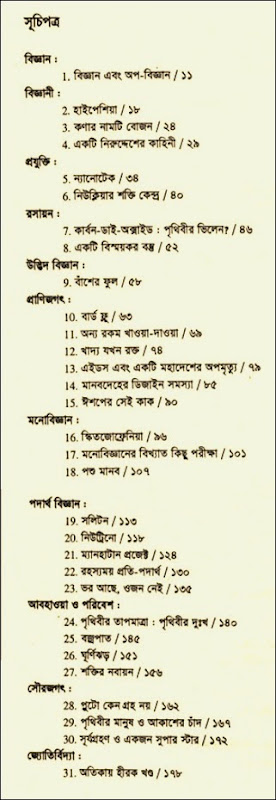 সূচিপত্র
বিজ্ঞান :
1. বিজ্ঞান এবং অপ-বিজ্ঞান / ১১
বিজ্ঞানী :
2. হাইপেশিয়া / ১৮
3. কণার নামটি বোজন / ২৪
4. একটি নিরুদ্দেশের কাহিনী / ২৯
প্রযুক্তি :
5. ন্যানোটেক / ৩৪
6. নিউক্লিয়ার শক্তি কেন্দ্র / ৪০
রসায়ন :
7. কার্বন-ডাই-অক্সাইড : পৃথিবীর ভিলেন? / ৪৬
8. একটি বিস্ময়কর বস্তু / ৫২
উদ্ভিদ বিজ্ঞান :
9. বাঁশের ফুল / ৫৮
প্রাণিজগৎ :
10. বার্ড ফ্লু / ৬৩
11. অন্য রকম খাওয়া-দাওয়া / ৬৯
12. খাদ্য যখন রক্ত / ৭৪
13. এইডস এবং একটি মহাদেশের অপমৃত্যু / ৭৯
14. মানবদেহের ডিজাইন সমস্যা / ৮৫
15. ঈশপের সেই কাক / ৯০
মনোবিজ্ঞান :
16. স্কিতজোফ্রেনিয়া / ৯৬
17. মনোবিজ্ঞানের বিখ্যাত কিছু পরীক্ষা / ১০১
18. পশু মানব / ১০৭
পদার্থ বিজ্ঞান :
19. সলিটন / ১১৩
20. নিউট্রিনো / ১১৮
21. ম্যানহাটান প্রজেক্ট / ১২৪
22. রহস্যময় প্রতি-পদার্থ / ১৩০
23. ভর আছে, ওজন নেই / ১৩৫
আবহাওয়া ও পরিবেশ :
24. পৃথিবীর তাপমাত্রা : পৃথিবীর দুঃখ / ১৪০
25. বজ্রপাত / ১৪৫
26. ঘূর্ণিঝড় / ১৫১
27. শক্তির নবায়ন / ১৫৬
সৌরজগৎ :
28. প্লুটো কেন গ্রহ নয় / ১৬২
29. পৃথিবীর মানুষ ও আকাশের চাঁদ / ১৬৭
30. সূর্যগ্রহণ ও একজন সুপার স্টার / ১৭২
জ্যোতির্বিদ্যা :
31. অতিকায় হীরক খণ্ড / ১৭৮